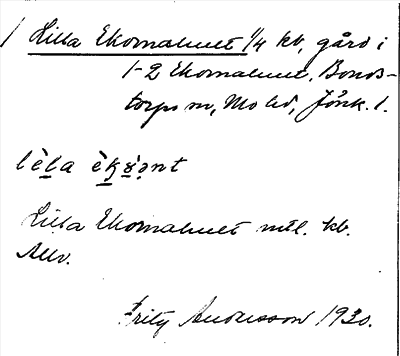 Lilla Ekornahult 1/4 kb, gård i
1-2 Ekornahult, Bonds-
torps sn, Mo hd, Jönk. l.
lèla èkənt
Lilla Ekornahult mtl. kb.
Allv.
Fritz Andersson 1930.